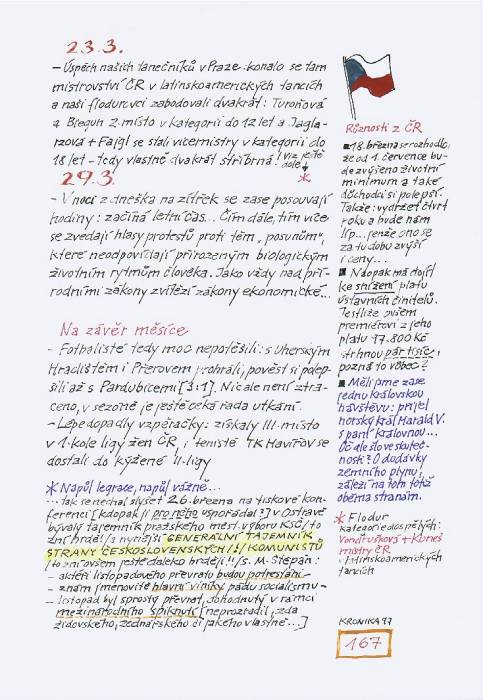 23.3.
- Úspěch našich tanečníků v Praze: konalo se tam
mistrovství ČR v latinskoamerických tancích
a naši flodurovci zabodovali dvakrát: Turoňová
a Biegun 2. místo v kategorii do 12 let a Jagla-
rzová + Fajgl se stali vicemistry v kategorii do
18 let - tedy vlastně dvakrát stříbrná! viz ještě
dole
*
29.3.
- V noci z dneška na zítřek se zase posouvají
hodiny: začíná letní čas... Čím dále, tím více
se zvedají hlasy protestů proti těm „posunům",
které neodpovídají přirozeným biologickým
životním rytmům člověka. Jako vždy nad pří-
rodními zákony zvítězí zákony ekonomické...
Na závěr měsíce
- Fotbalisté tedy moc nepotěšili: s Uherským
Hradištěm i Přerovem prohráli, pověst si polep-
šili až s Pardubicemi [3:1]. Nic ale není ztra-
ceno, v sezoně je ještě celá řada utkání.
- Lépe dopadly vzpěračky: získaly III. místo
v 1. kole ligy žen ČR, i tenisté TK Havířov se
dostali do kýžené II. ligy
* Napůl legrace, napůl vážně...
... tak se nechal slyšet 26. března na tiskové kon-
ferenci [kdopak jí pro něho uspořádal?] v Ostravě
bývalý tajemník pražského měst. výboru KSČ /to
zní hrdě!/ a nynější GENERÁLNÍ TAJEMNÍK
STRANY ČESKOSLOVENSKÝCH /!/ KOMUNISTŮ
/to zní ovšem ještě daleko hrději!!/ s. M. Štěpán:
- aktéři listopadového převratu budou potrestáni -
- znám jmenovitě hlavní viníky pádu socialismu -
- listopad byl sprostý převrat, dohodnutý v rámci
mezinárodního spiknutí [neprozradil, zda
židovského, zednářského či jakého vlastně...]
Různosti z ČR
■ 18. března se rozhodlo,
že od 1. července bu-
de zvýšeno životní
minimum a také
důchodci si polepší.
Takže: vydržet čtvrt
roku a bude nám
líp... jenže ono se
za tu dobu zvýší
i ceny...
■ Naopak má dojít
ke snížení platu
ústavních činitelů.
Jestliže ovšem
premiérovi z jeho
platu 97.800 Kč
strhnou pár tisíc,
pozná to vůbec?
■ Měli jsme zase
jednu královskou
návštěvu: přijel
norský král Harald V.
s paní královnou...
Oč ale šlo ve skuteč-
nosti? O dodávky
zemního plynu,
záleží na tom totiž
oběma stranám.
* Flodur
kategorie dospělých:
Vondrušková + Kuneš
mistry ČR
v latinskoamerických
tancích
KRONIKA 97
167